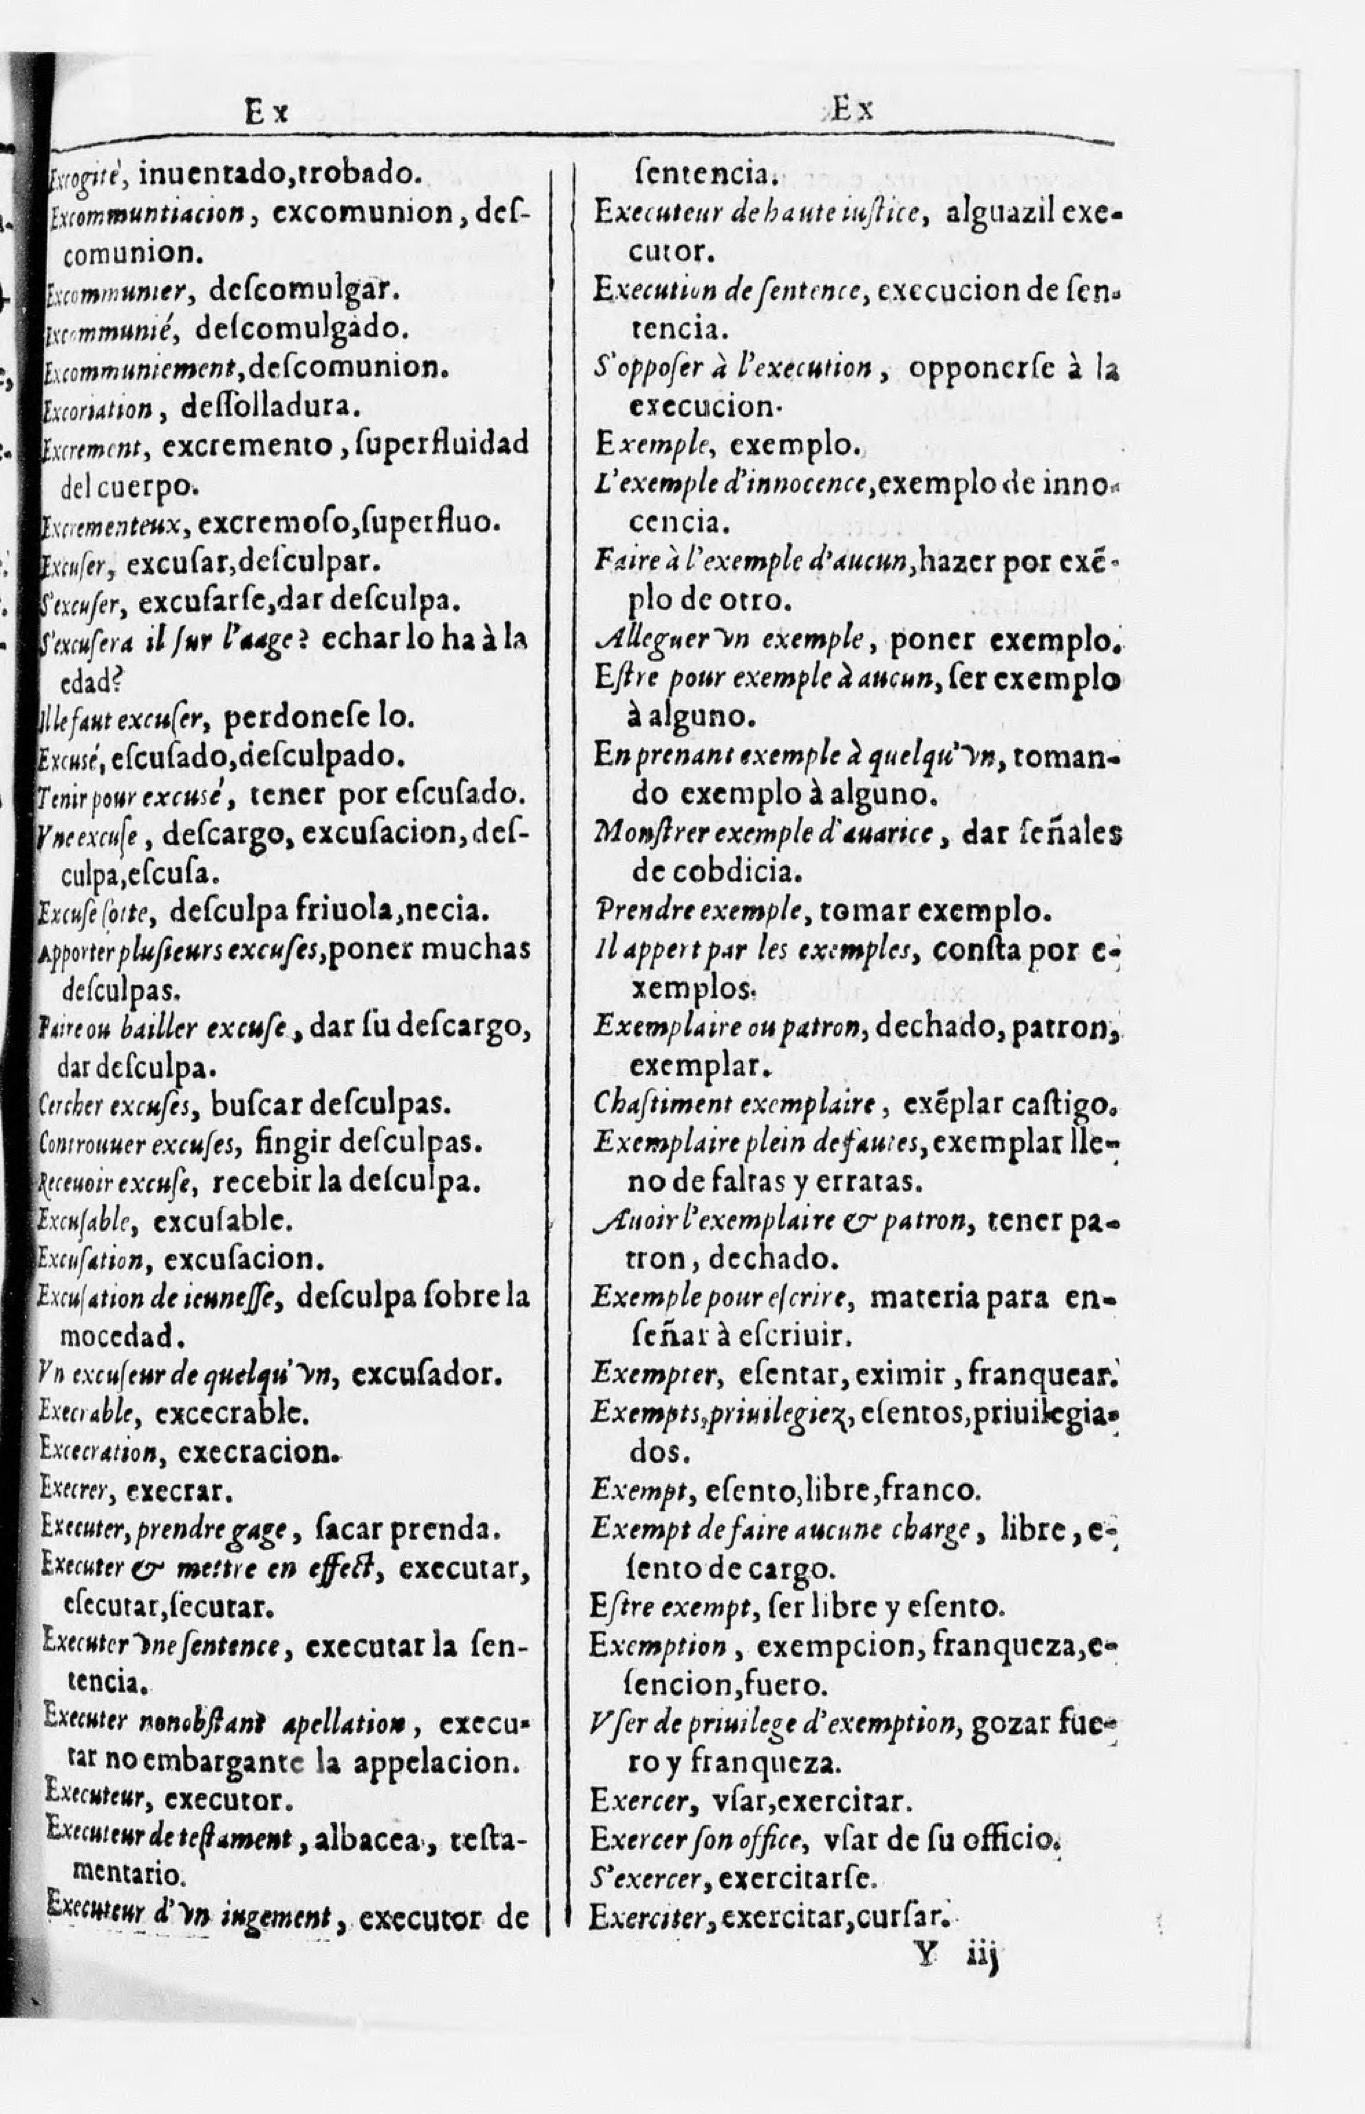 Ex
Excogité, inuentado,trobado.
Excommuntiacion, excomunion, deſ-
comunion.
Excommunier, deſcomulgar.
Excommunié, deſcomulgado.
Excommuniement,deſcomunion.
Excoriation, deſſolladura.
Excrement, excremento, ſuperfluidad
del cuerpo.
Excrementeux, excremoſo,ſuperfluo.
Excuſer, excuſar,deſculpar.
S'excuſer, excuſarſe,dar deſculpa.
S'excuſera il ſur l'aage? echar lo ha à la
edad?
Il le faut excuſer, perdoneſe lo.
Excusé, eſcuſado,deſculpado.
Tenir pour excusé, tener por eſcuſado.
Vne excuſe, deſcargo, excuſacion, deſ-
culpa,eſcuſa.
Excuſe ſotte, deſculpa friuola,necia.
Apporter pluſieurs excuſes,poner muchas
deſculpas.
Faire ou bailler excuſe, dar ſu deſcargo,
dar deſculpa.
Cercher excuſes, buſcar deſculpas.
Controuuer excuſes, fingir deſculpas.
Receuoir excuſe, recebir la deſculpa.
Excuſable, excuſable.
Excuſation, excuſacion.
Excuſation de ieuneſſe, deſculpa ſobre la
mocedad.
Vn excuſeur de quelqu'vn, excuſador.
Execrable, excecrable.
Excecration, execracion.
Execrer, execrar.
Executer, prendre gage, ſacar prenda.
Executer & mettre en effect, executar,
eſecutar,ſecutar.
Executer vne ſentence, executar la ſen-
tencia.
Executer nonobſtant apellation, execu-
tar no embargante la appelacion.
Executeur, executor.
Executeur de teſtament, albacea, teſta-
mentario.
Executeur d'vn iugement, executor de
Ex
ſentencia.
Executeur de haute iuſtice, alguazil exe-
cutor.
Execution de ſentence, execucion de ſen-
tencia.
S'oppoſer à l'execution, opponerſe à la
execucion.
Exemple, exemplo.
L'exemple d'innocence,exemplo de inno-
cencia.
Faire à l'exemple d'aucun,hazer por exẽ-
plo de otro.
Alleguer vn exemple, poner exemplo.
Eſtre pour exemple à aucun, ſer exemplo
à alguno.
En prenant exemple à quelqu'vn, toman-
do exemplo à alguno.
Monſtrer exemple d'auarice, dar ſeñales
de cobdicia.
Prendre exemple, tomar exemplo.
Il appert par les exemples, conſta por e-
xemplos.
Exemplaire ou patron, dechado, patron,
exemplar.
Chaſtiment exemplaire, exẽplar caſtigo.
Exemplaire plein de fautes, exemplar lle-
no de faltas y erratas.
Auoir l'exemplaire & patron, tener pa-
tron, dechado.
Exemple pour eſcrire, materia para en-
ſeñar à eſcriuir.
Exempter, eſentar, eximir, franquear.
Exempts,priuilegiez, eſentos,priuilegia-
dos.
Exempt, eſento,libre,franco.
Exempt de faire aucune charge, libre, e-
ſento de cargo.
Eſtre exempt, ſer libre y eſento.
Exemption, exempcion, franqueza,e-
ſencion,fuero.
Vſer de priuilege d'exemption, gozar fue-
ro y franqueza.
Exercer, vſar,exercitar.
Exercer ſon office, vſar de ſu officio.
S'exercer, exercitarſe.
Exerciter, exercitar,curſar.
Y iij